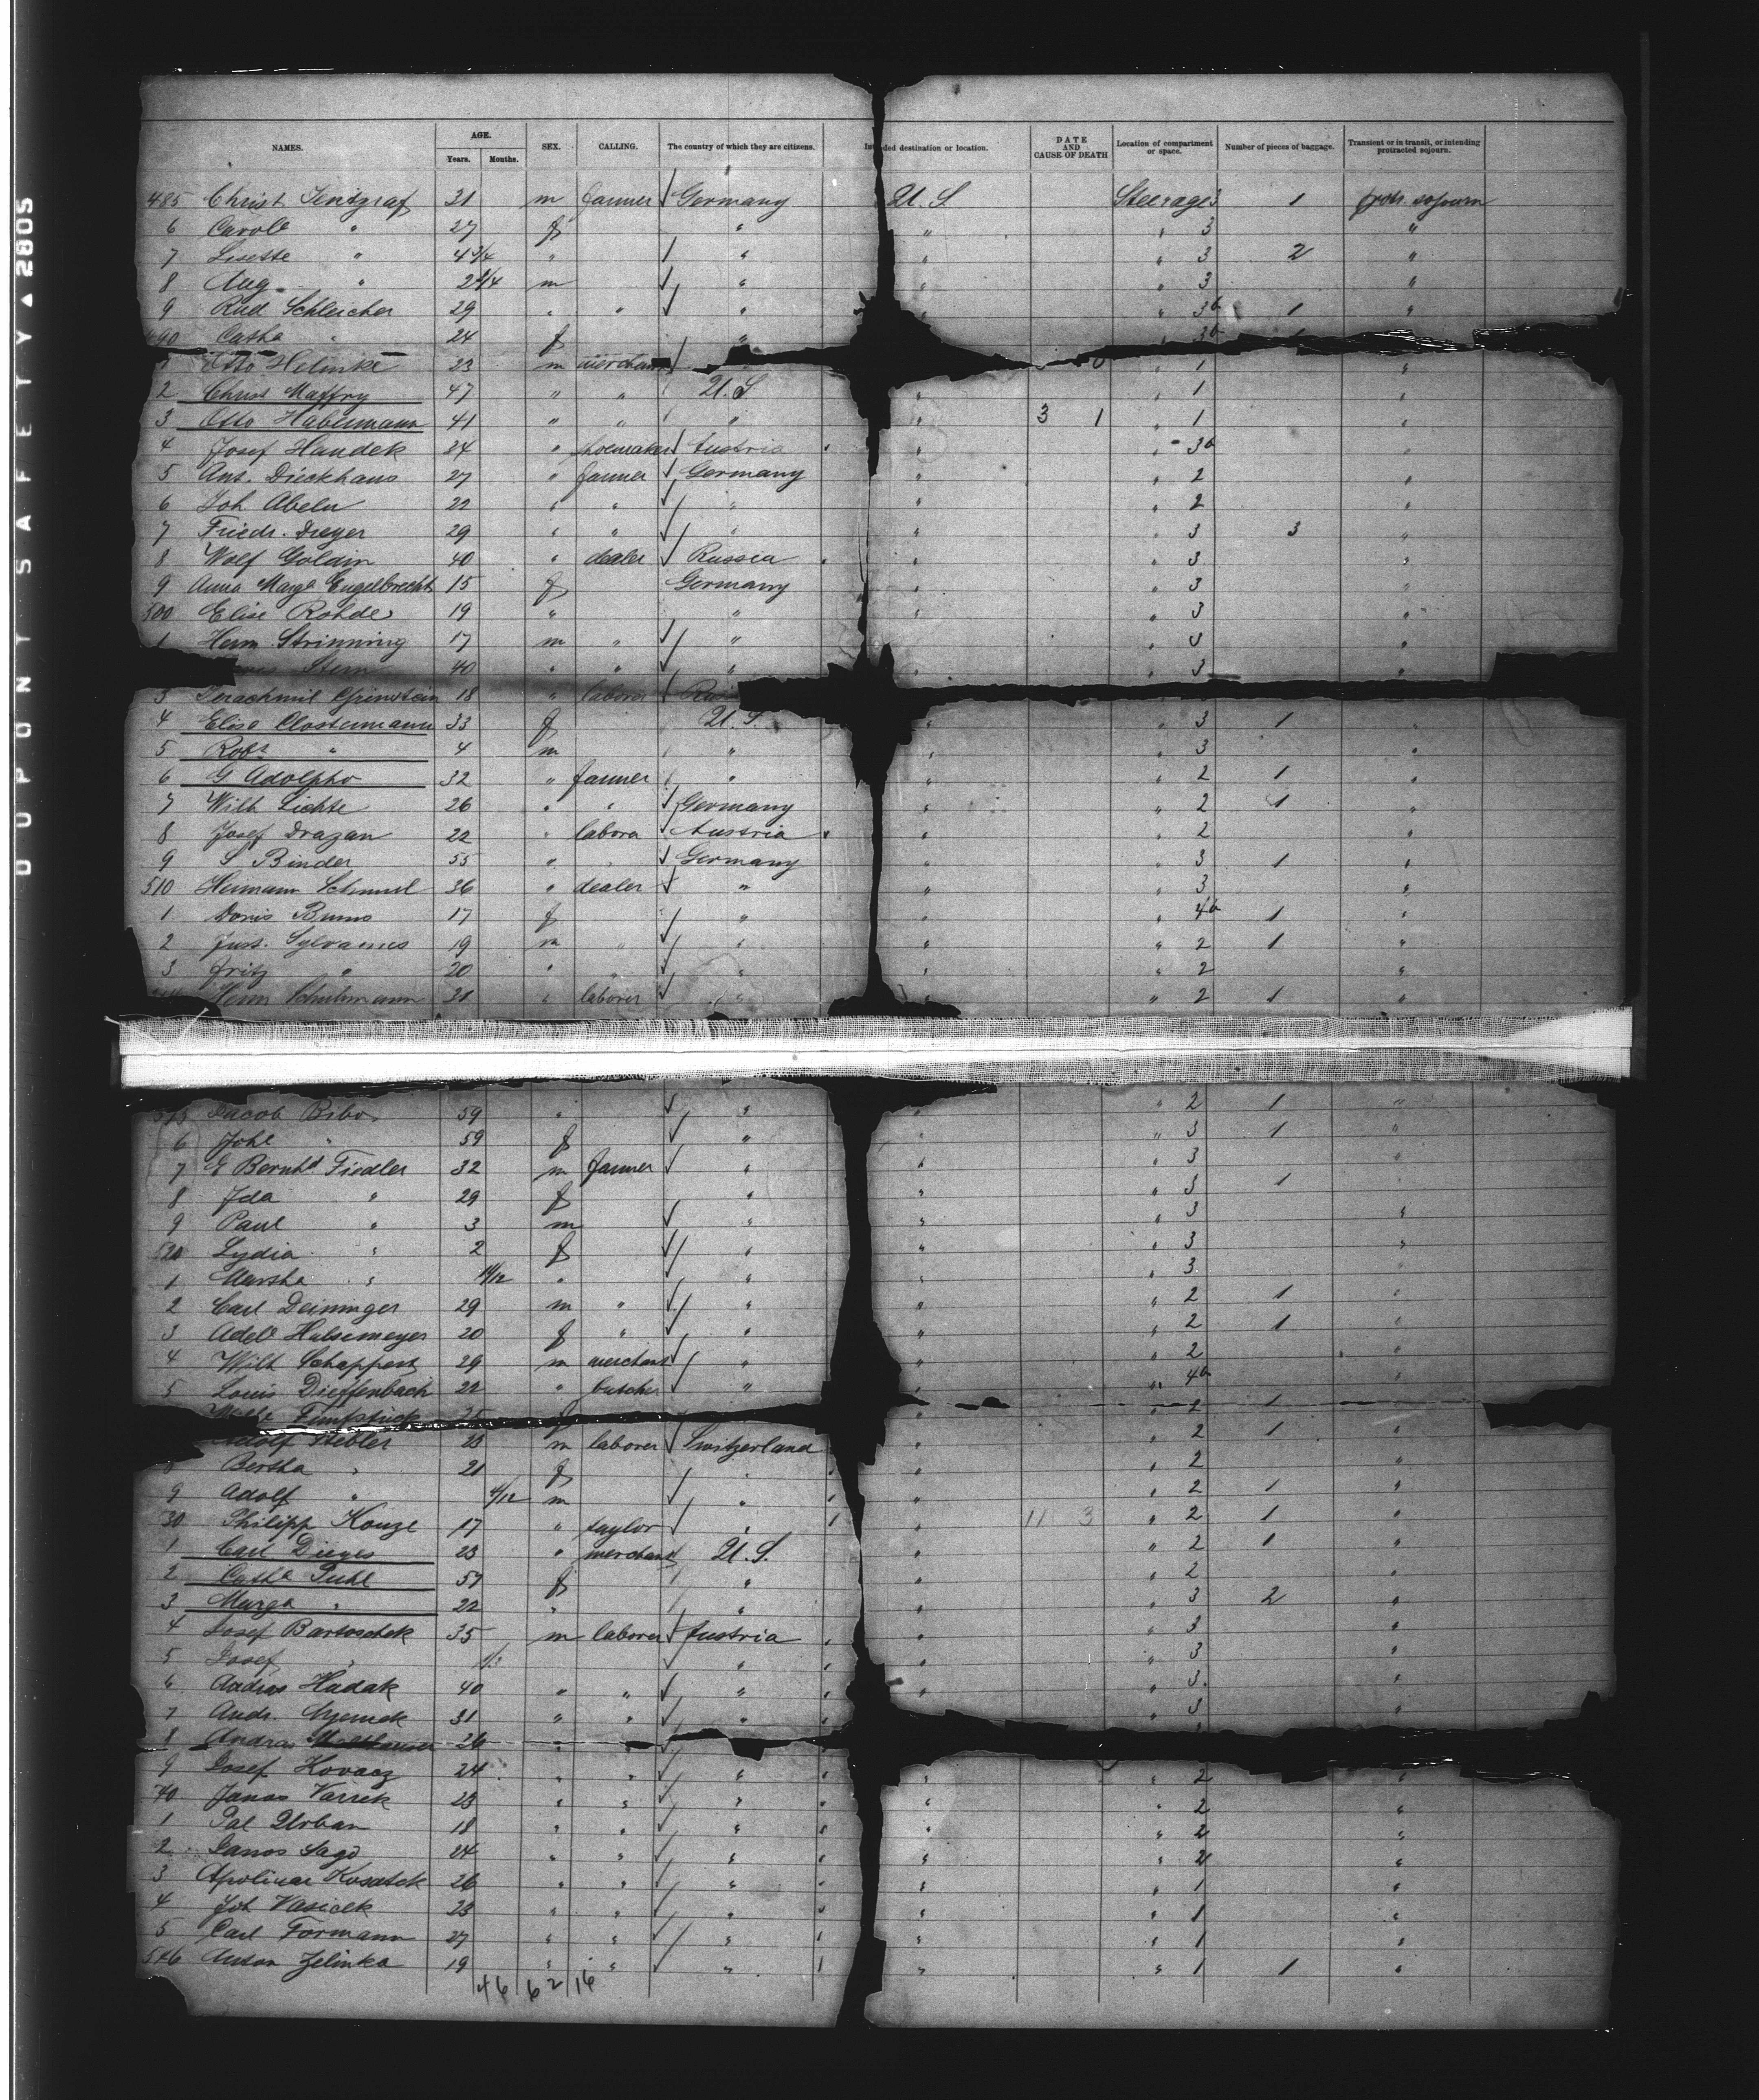 DUPONT SAFETY ▲ 2805
NAMES. AGE. Years. Months. SEX. CALLING. The country of which they are citizens. Intended destination or location. DATE AND CAUSE OF DEATH Location of compartment or space. Number of pieces of baggage. Transient or in transit, or intending protracted sojourn.
485 Christ 21 m farmer Germany U.S. Steerage 3 1 protr. sojourn
6 Carole " 27 f " " " 3 "
7 Lisette " 4 3/4 " " " " 3 2 "
8 Aug. " 2 m " " " 3 "
9 Rud Schleicher 29 " " " " " 3b 1 "
490 Cathe " 24 f " 3b
Otto Helmke 23 m merchant " 1 "
2 Christ Maffry 47 " " U.S " " 1 "
3 Otto Hablemann 41 " " " " 3 1 " 1 "
4 Josef Handek 24 " shoemaker Austria " " 3b "
5 Ant. Dieckhaus 27 " farmer Germany " " 2 "
6 Joh Abeln 22 " " " " " 2 "
7 Friedr. Dreyer 29 " " " " " 3 3 "
8 Wolf Goldin 40 " dealer Russia " " 3 "
9 Anna Marga Engelbrecht 15 f Germany " " 3 "
500 Elise Rohde 19 " " " " 3 "
1 Herm Strinning 17 m " " " 3 "
Stern 40 " " " " 3 "
3 Grinstein 18 " laborer
4 Elise Clostermann 33 f U.S. " " 3 1
5 Robt " 4 m " " " 3 "
6 G. Adolpho 32 " farmer " " " 2 1 "
7 Wilh Lichte 26 " " Germany " " 2 1 "
8 Josef Drazan 22 " labora Austria " " 2 "
9 S Binder 55 " " Germany " " 3 1 "
510 Hermann Schmul 36 " dealer " " " 3 "
1 Doris Bruns 17 f " " " 4b 1 "
2 Just. Sylvanus 19 m " " " " 2 1 "
3 Fritz " 20 " " " " " 2 "
Herm Schuhmann 21 " laborer " " " 2 1 "
515 Jacob Bibo 59 " " " " 2 1 "
6 " 59 f " " " 3 1 "
7 E Bernhd Fiedler 32 m farmer " " " 3 "
8 Ida " 29 f " " " 3 1
9 Paul " 3 m " " " 3 "
520 Lydia " 2 f " " " 3 "
1 " 11/12 " " " " 3 "
2 Carl Deininger 29 m " " " " 2 1 "
3 Adele Hulsemeyer 20 f " " " " 2 1 "
4 Wilh Schappert 29 m merchant " " " 2 "
5 Louis Dieffenbach 22 " butcher " " " 4b "
Funfstück 25 " " 2 1 "
Adolf Stebler 23 m laborer Switzerland " " 2 1 "
8 Bertha " 21 f " " " 2 "
9 Adolf " 4/12 m " " " 2 1 "
30 Philipp Konze 17 " taylor " " 11 3 " 2 1 "
1 Carl Dieges 23 " merchant U.S. " " 2 1 "
2 Catha Puhl 57 f " " " 2 "
3 Marga " 22 " " " " 3 2 "
4 Josef Bartoschek 35 m laborer Austria " " 3 "
5 Josef " " " " 3 "
6 Andras Hadak 40 " " " " " 3 "
7 Andr. 31 " " " " 3 "
8 Andras 26 " "
9 Josef Kovacz 24 " " " " " 2 "
40 Janos Varrek 23 " " " " " 2 "
1 Pal Urban 18 " " " " " 2 "
2 Janos Sago 24 " " " " " 2 "
3 Apolinar Kosatek 26 " " " " " 1 "
4 Joh Vasicek 23 " " " " " 1 "
5 Carl Formann 27 " " " " " 1 "
546 Anton Zelinka 19 " " " " " 1 1 "
46 62 16